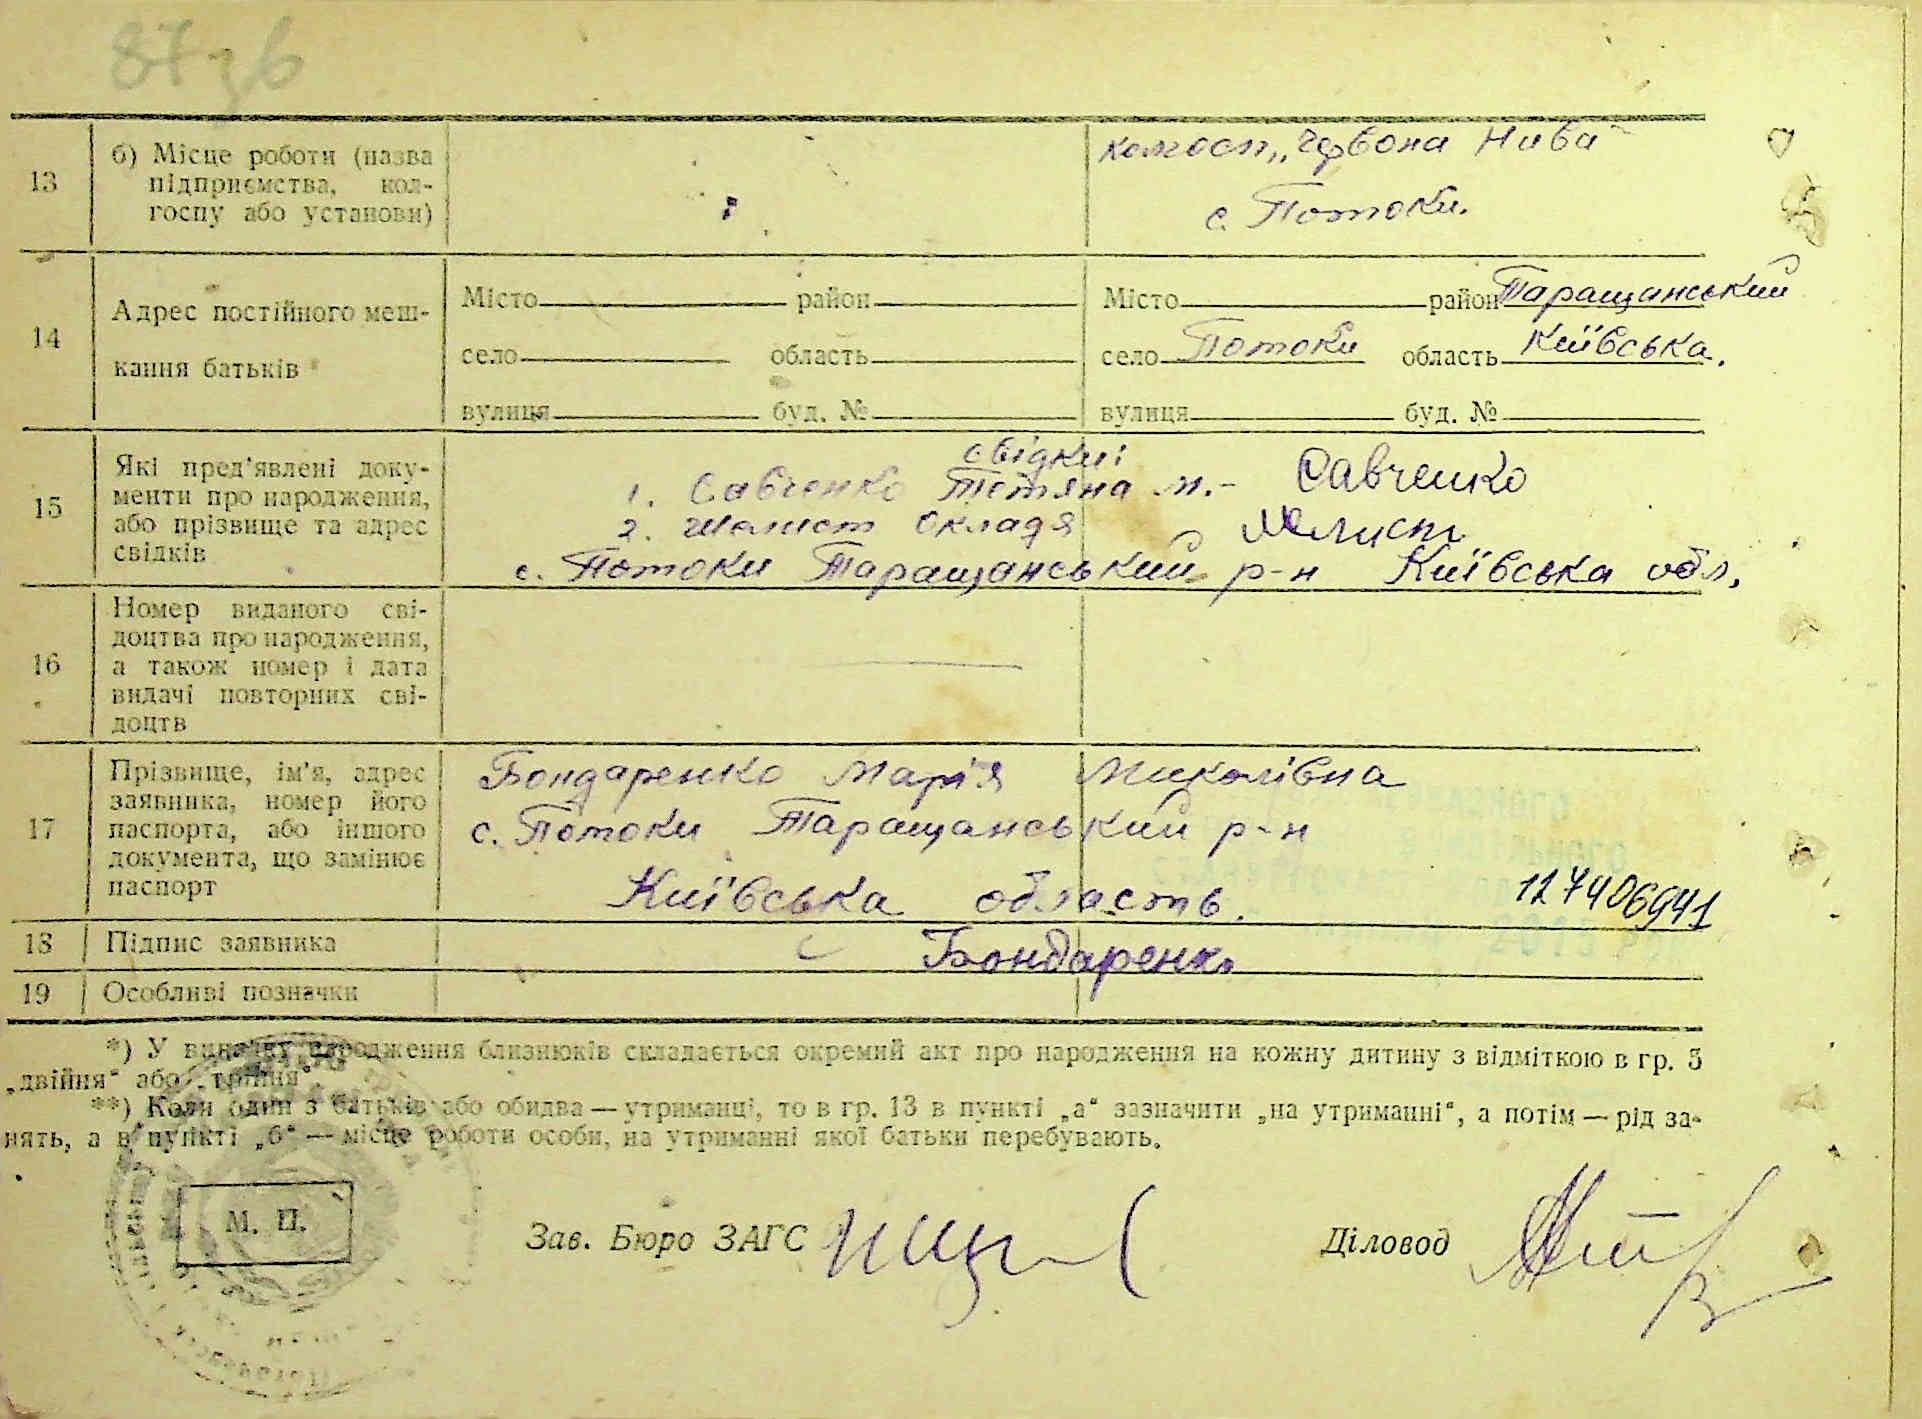 87зв
13
б) Місце роботи (назва
підприємства, кол-
госпу або установи)
колгосп „Червона Нива"
с. Потоки.
14
Адрес постійного меш-
кання батьків
Місто район
село область
вулиця буд. №
Місто район Таращанський
село Потоки область Київська.
вулиця буд. №
15
Які пред'явлені доку-
менти про народження,
або прізвище та адрес
свідків
свідки:
1. Савченко Тетяна М.- Савченко
2. Шолист
с. Потоки Таращанський р-н Київська обл,
16
Номер виданого сві-
доцтва про народження,
а також номер і дата
видачі повторних сві-
доцтв
17
Прізвище, ім'я, адрес
заявника, номер його
паспорта, або іншого
документа, що замінює
паспорт
Бондаренко Марія Миколівна
с. Потоки Таращанський р-н
Київська область.
127406941
18
Підпис заявника
Бондаренко
19
Особливі позначки
*) У випадку народження близнюків складається окремий акт про народження на кожну дитину з відміткою в гр. 3
„двійня" або „трійня"
**) Коли один з батьків або обидва — утриманці, то в гр. 13 в пункті „а" зазначити „на утриманні", а потім — рід за-
нять, а в пункті „б" — місце роботи особи, на утриманні якої батьки перебувають.
М. П.
Зав. Бюро ЗАГС
Діловод